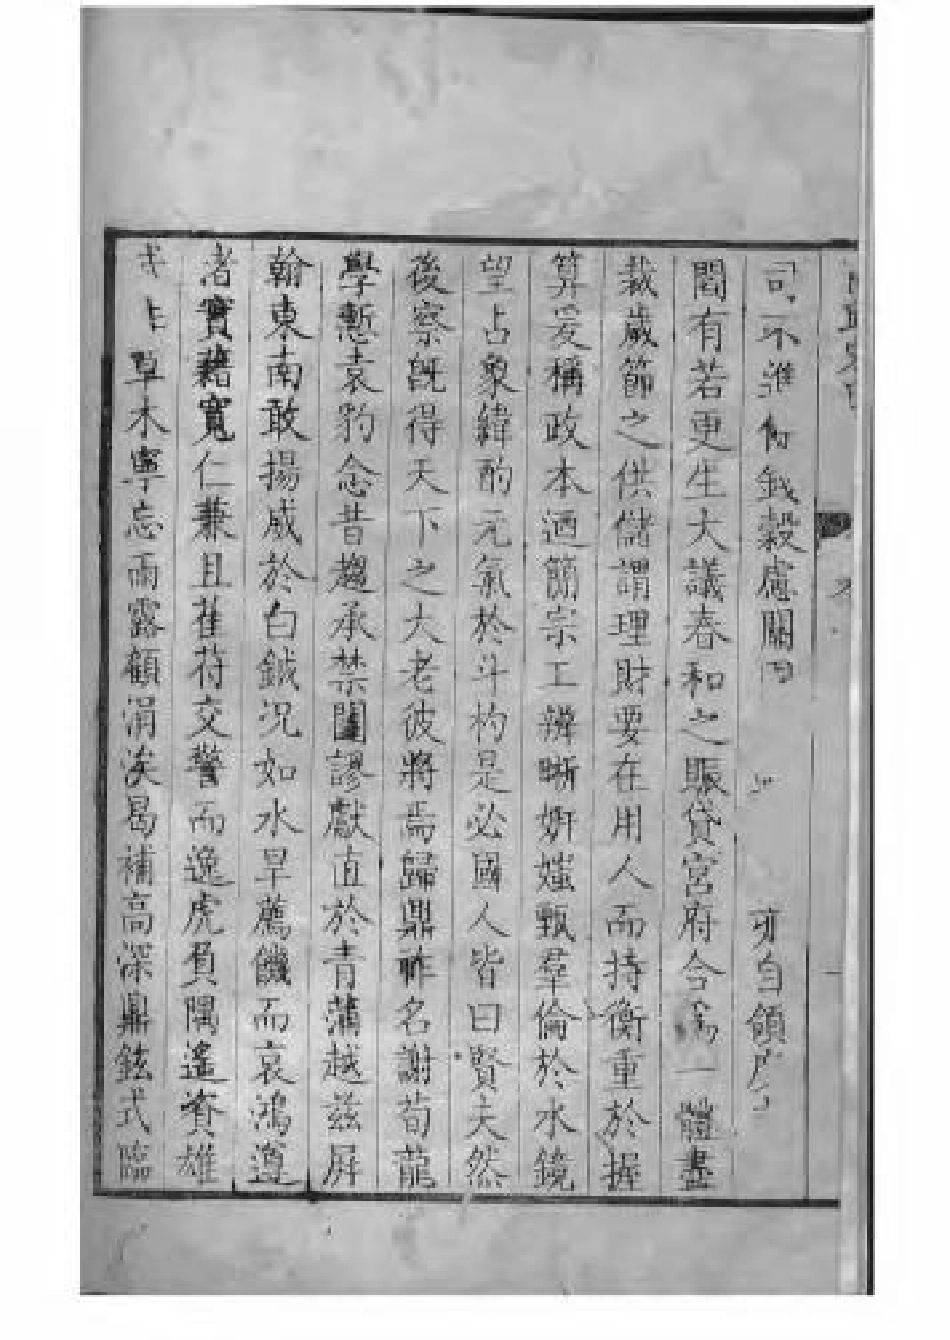 司不進 錢穀慮關 牙自領
閣有若更生大議春和之賑貸宮府合為一體盡
裁歲節之供儲謂理財要在用人而持衡重於握
算爰稱政本迺簡宗工辨晰妍媸甄羣倫於水鏡
望占象緯酌元氣於斗杓是必國人皆曰賢夫然
後察既得天下之大老彼將焉歸鼎祚名謝荀龍
學慙袁豹念昔趨承禁闥謬獻直於青蒲越茲屏
翰東南敢揚威於白鉞况如水旱薦饑而哀鴻遵
渚實藉寬仁兼且萑苻交警而逸虎負隅遙資雄
占草木寧忘雨露顧涓涘曷補高深鼎鉉式臨